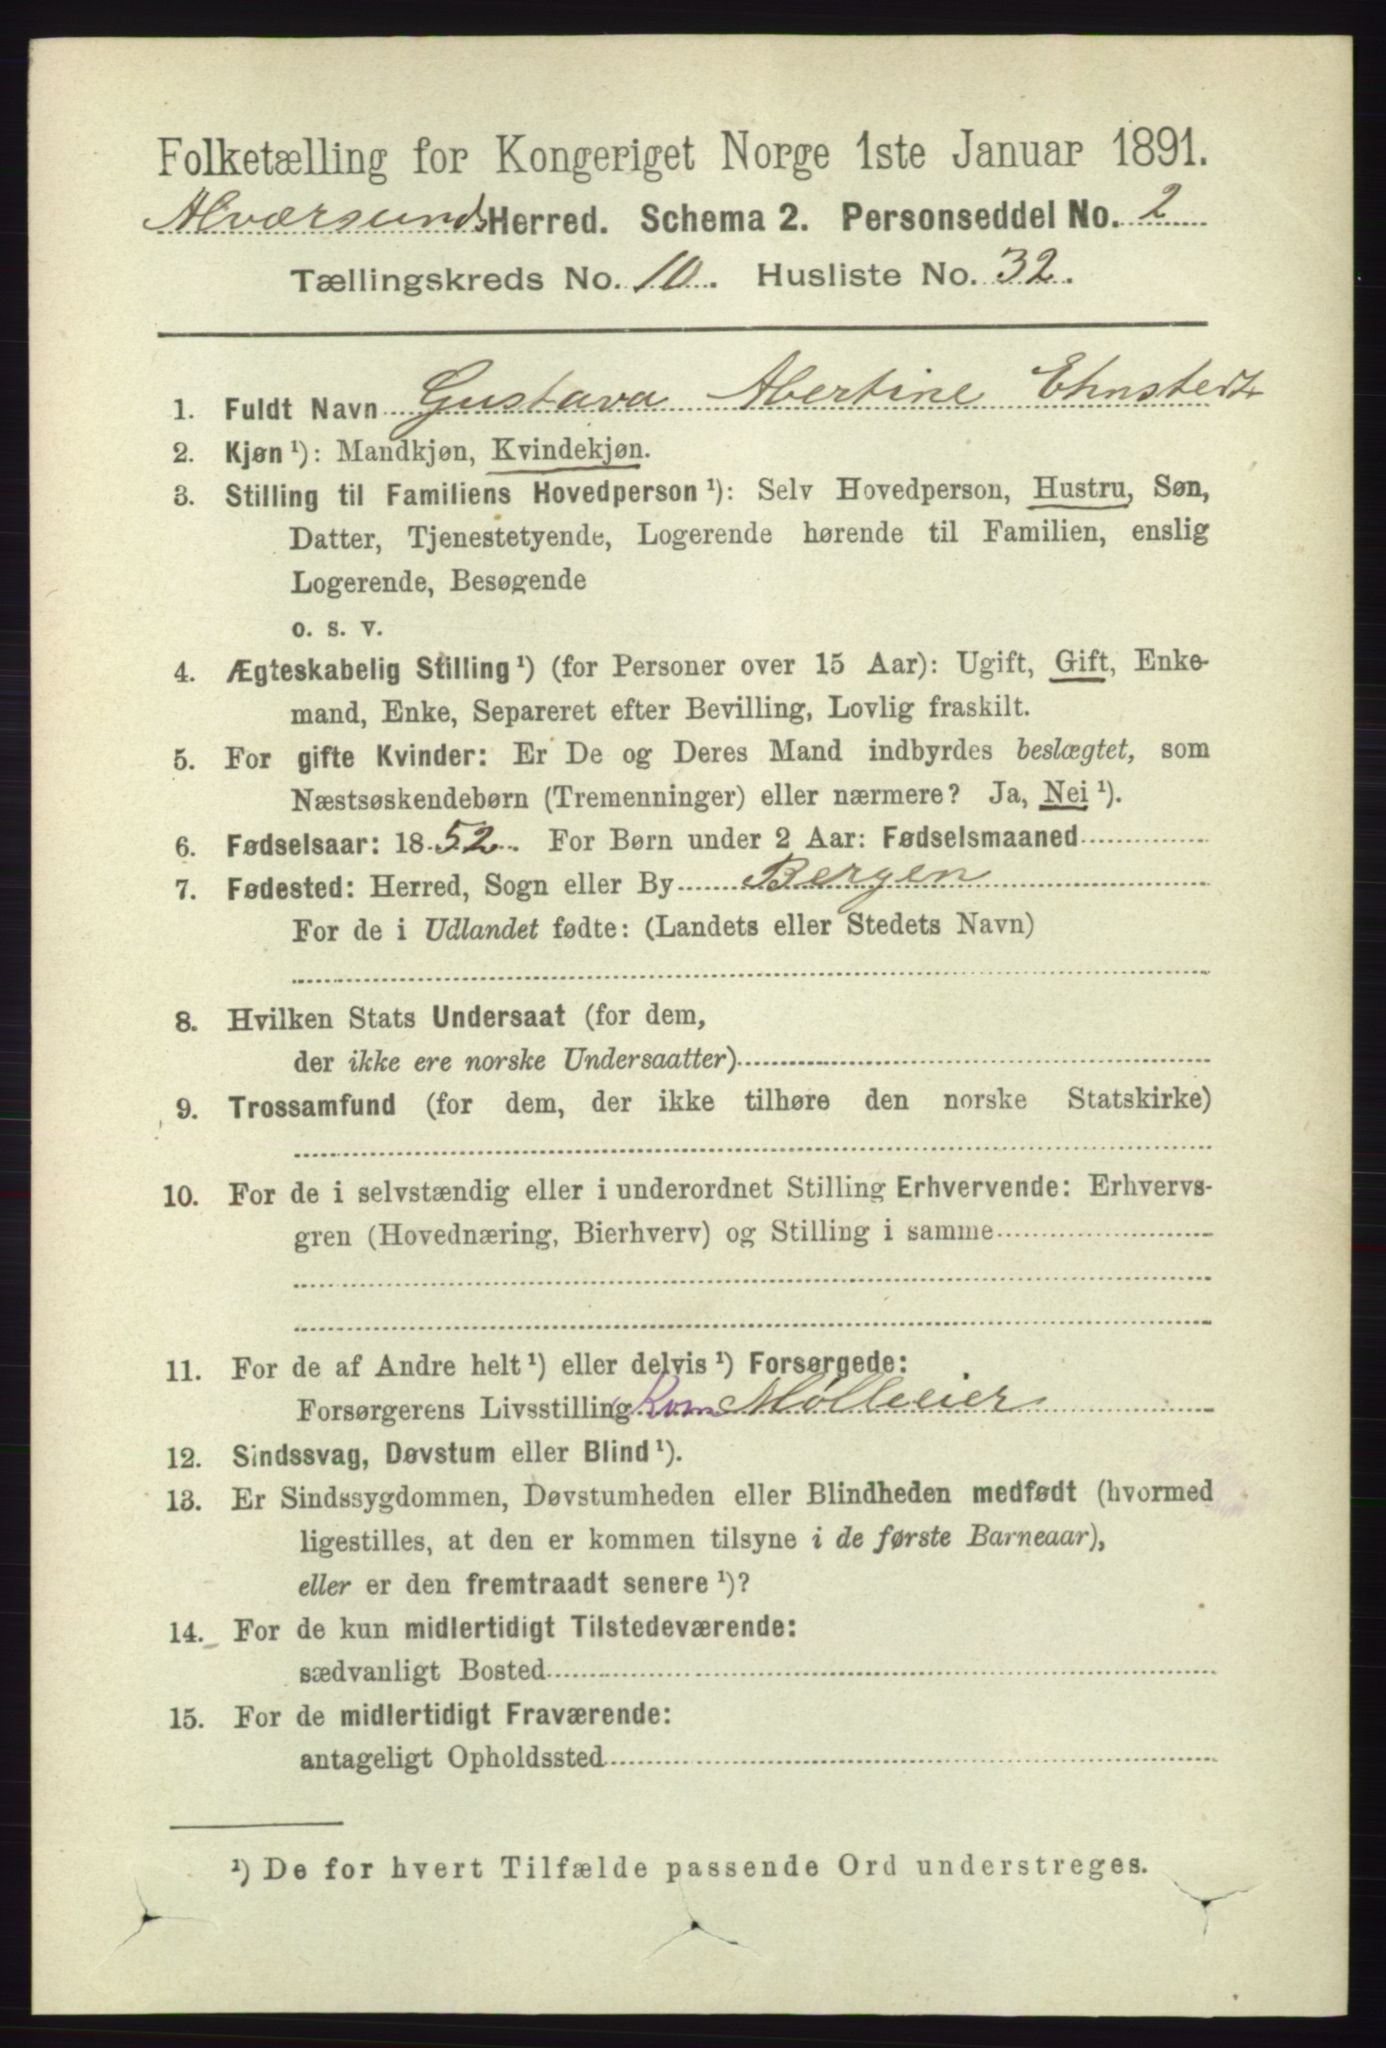 Folketælling for Kongeriget Norge 1ste Januar 1891.
Alværsunds Herred. Schema 2. Personseddel No. 2
Tællingskreds No. 10. Husliste No. 32.
1. Fuldt Navn Gustava Abertine Ehnstedt
2. Kjøn ¹): Mandkjøn, Kvindekjøn.
3. Stilling til Familiens Hovedperson ¹): Selv Hovedperson, Hustru, Søn,
Datter, Tjenestetyende, Logerende hørende til Familien, enslig
Logerende, Besøgende
o. s. v.
4. Ægteskabelig Stilling ¹) (for Personer over 15 Aar): Ugift, Gift, Enke-
mand, Enke, Separeret efter Bevilling, Lovlig fraskilt.
5. For gifte Kvinder: Er De og Deres Mand indbyrdes beslægtet, som
Næstsøskendebørn (Tremenninger) eller nærmere? Ja, Nei ¹).
6. Fødselsaar: 1852. For Børn under 2 Aar: Fødselsmaaned
7. Fødested: Herred, Sogn eller By Bergen
For de i Udlandet fødte: (Landets eller Stedets Navn)
8. Hvilken Stats Undersaat (for dem,
der ikke ere norske Undersaatter)
9. Trossamfund (for dem, der ikke tilhøre den norske Statskirke)
10. For de i selvstændig eller i underordnet Stilling Erhvervende: Erhvervs-
gren (Hovednæring, Bierhverv) og Stilling i samme
11. For de af Andre helt ¹) eller delvis ¹) Forsørgede:
Forsørgerens Livsstilling Korn Mølleeier
12. Sindssvag, Døvstum eller Blind ¹).
13. Er Sindssygdommen, Døvstumheden eller Blindheden medfødt (hvormed
ligestilles, at den er kommen tilsyne i de første Barneaar),
eller er den fremtraadt senere ¹)?
14. For de kun midlertidigt Tilstedeværende:
sædvanligt Bosted
15. For de midlertidigt Fraværende:
antageligt Opholdssted
¹) De for hvert Tilfælde passende Ord understreges.